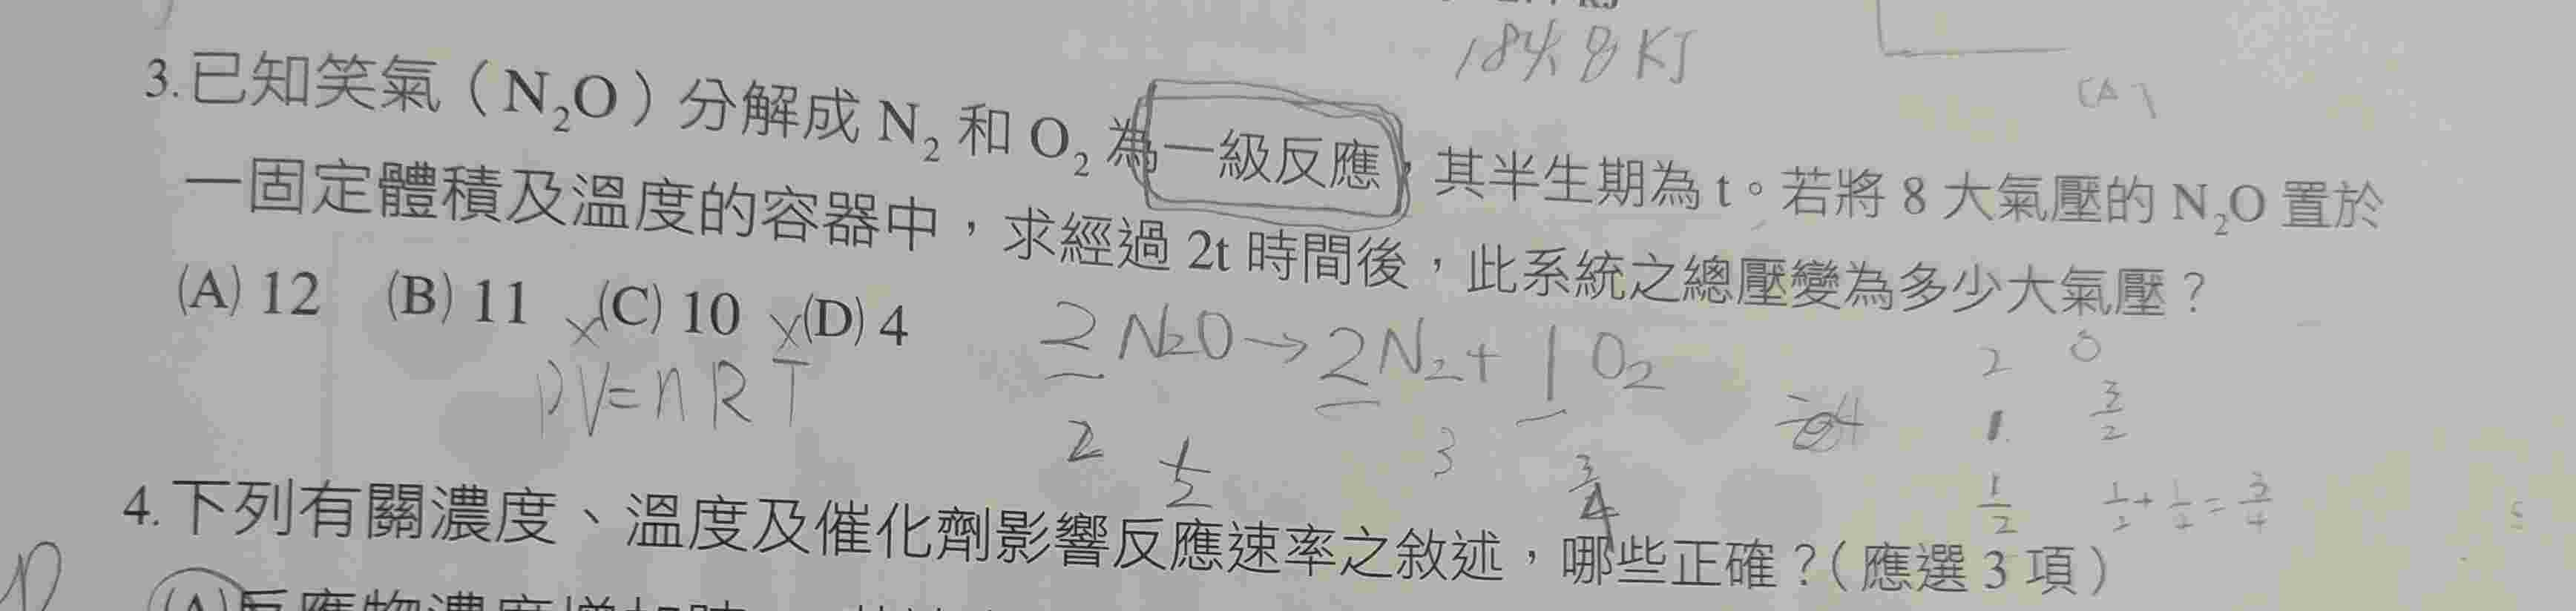 184.8 KJ
(A)
3.已知笑氣（N₂O）分解成 N₂ 和 O₂ 為一級反應，其半生期為 t。若將 8 大氣壓的 N₂O 置於
一固定體積及溫度的容器中，求經過 2t 時間後，此系統之總壓變為多少大氣壓？
(A) 12 (B) 11 ×(C) 10 ×(D) 4
2 N₂O → 2 N₂ + 1 O₂
2 0
PV=nRT
1 3/2
2 1/2 3 3/4
1/2 1/2+1/4=3/4
4.下列有關濃度、溫度及催化劑影響反應速率之敘述，哪些正確？（應選 3 項）